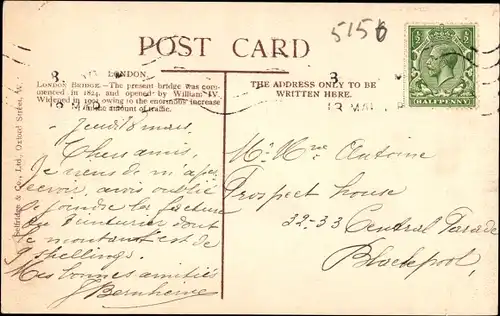 5156
POST CARD
LONDON.
LONDON BRIDGE.—The present bridge was com-
menced in 1824, and opened by William IV.
Widened in owing to the enormous increase
in the amount of traffic.
THE ADDRESS ONLY TO BE
WRITTEN HERE.
HALFPENNY
Selfridge & Co., Ltd., Oxford Street, W.
Jeudi 18 mars
Chers amis,
Je viens de m'aper
cevoir, avoir oublié
de joindre la facture
du teinturier dont
le montant est de
9 shellings.
Mes bonnes amitiés
J Bernheime
Mr Mme Antoine
Prospect house
22-33 Central Parade
Blackpool,